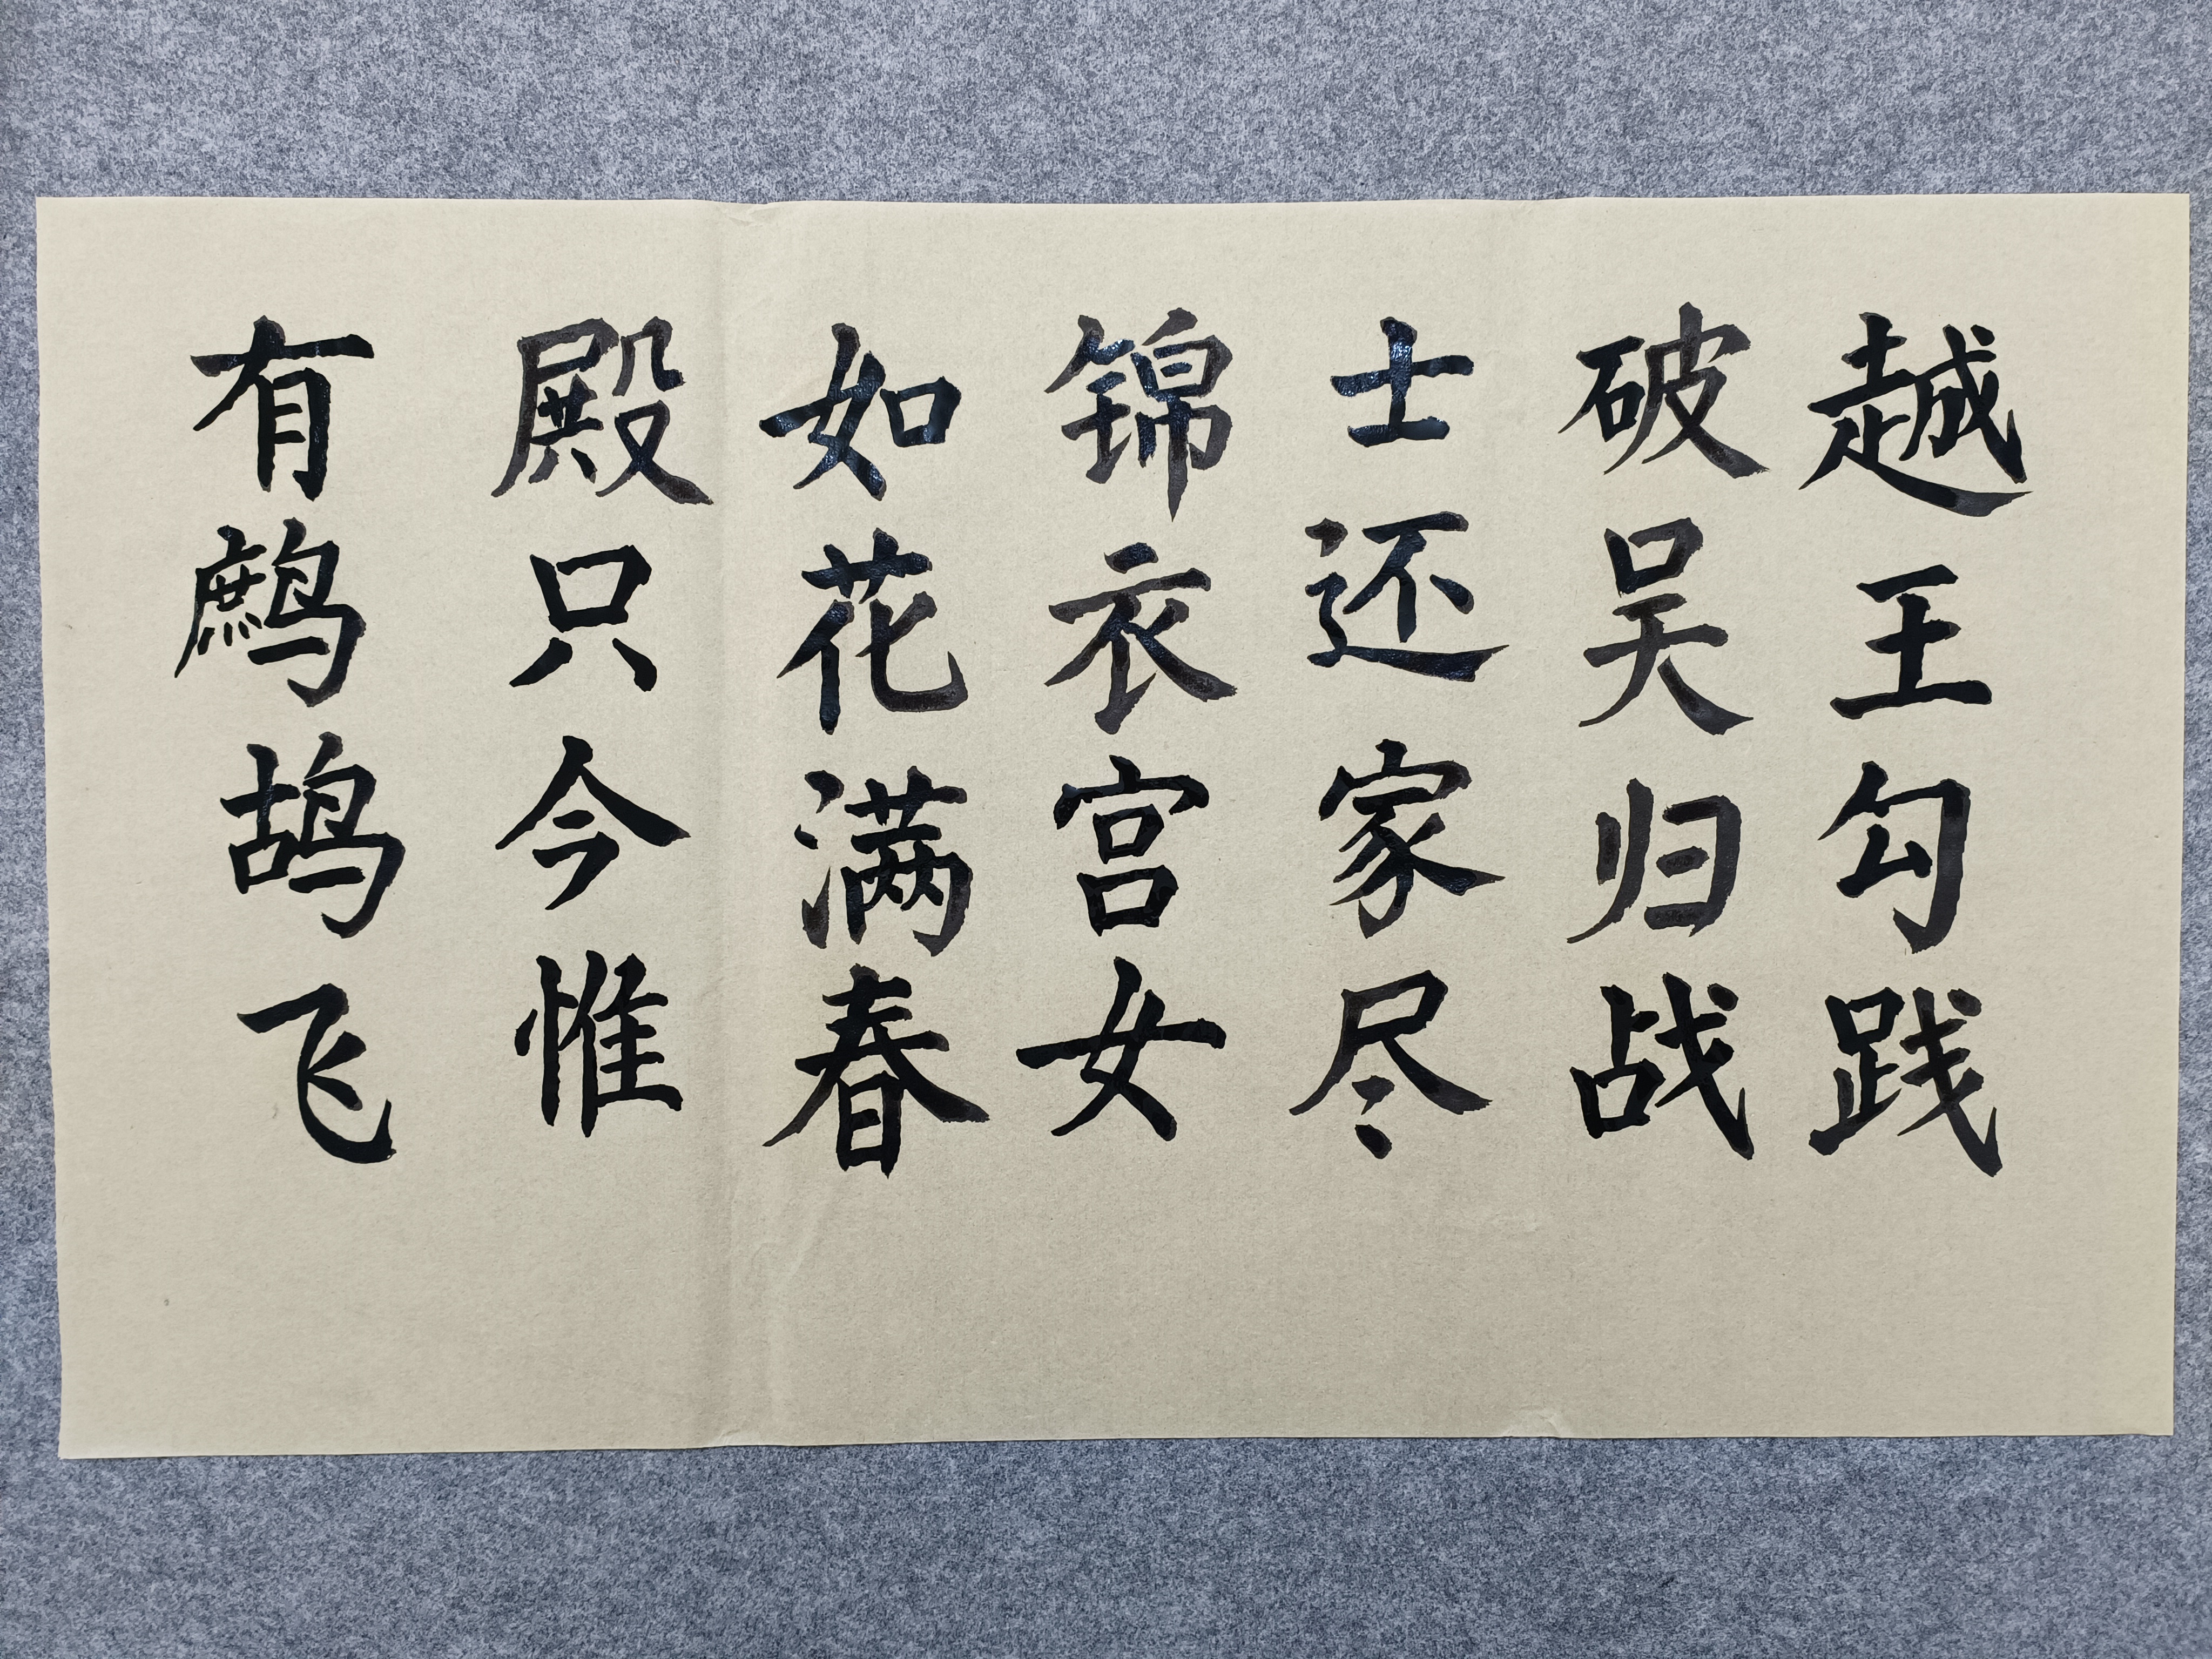 越王勾践
破吴归战
士还家尽
锦衣宫女
如花满春
殿只今惟
有鹧鸪飞